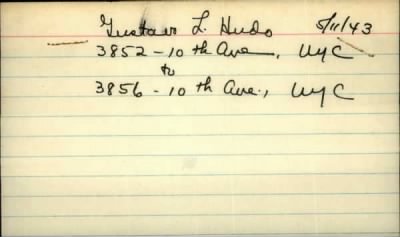 Gustav L. Hudo 5/11/43
3852-10th Ave., NYC
to
3856-10th Ave., NYC